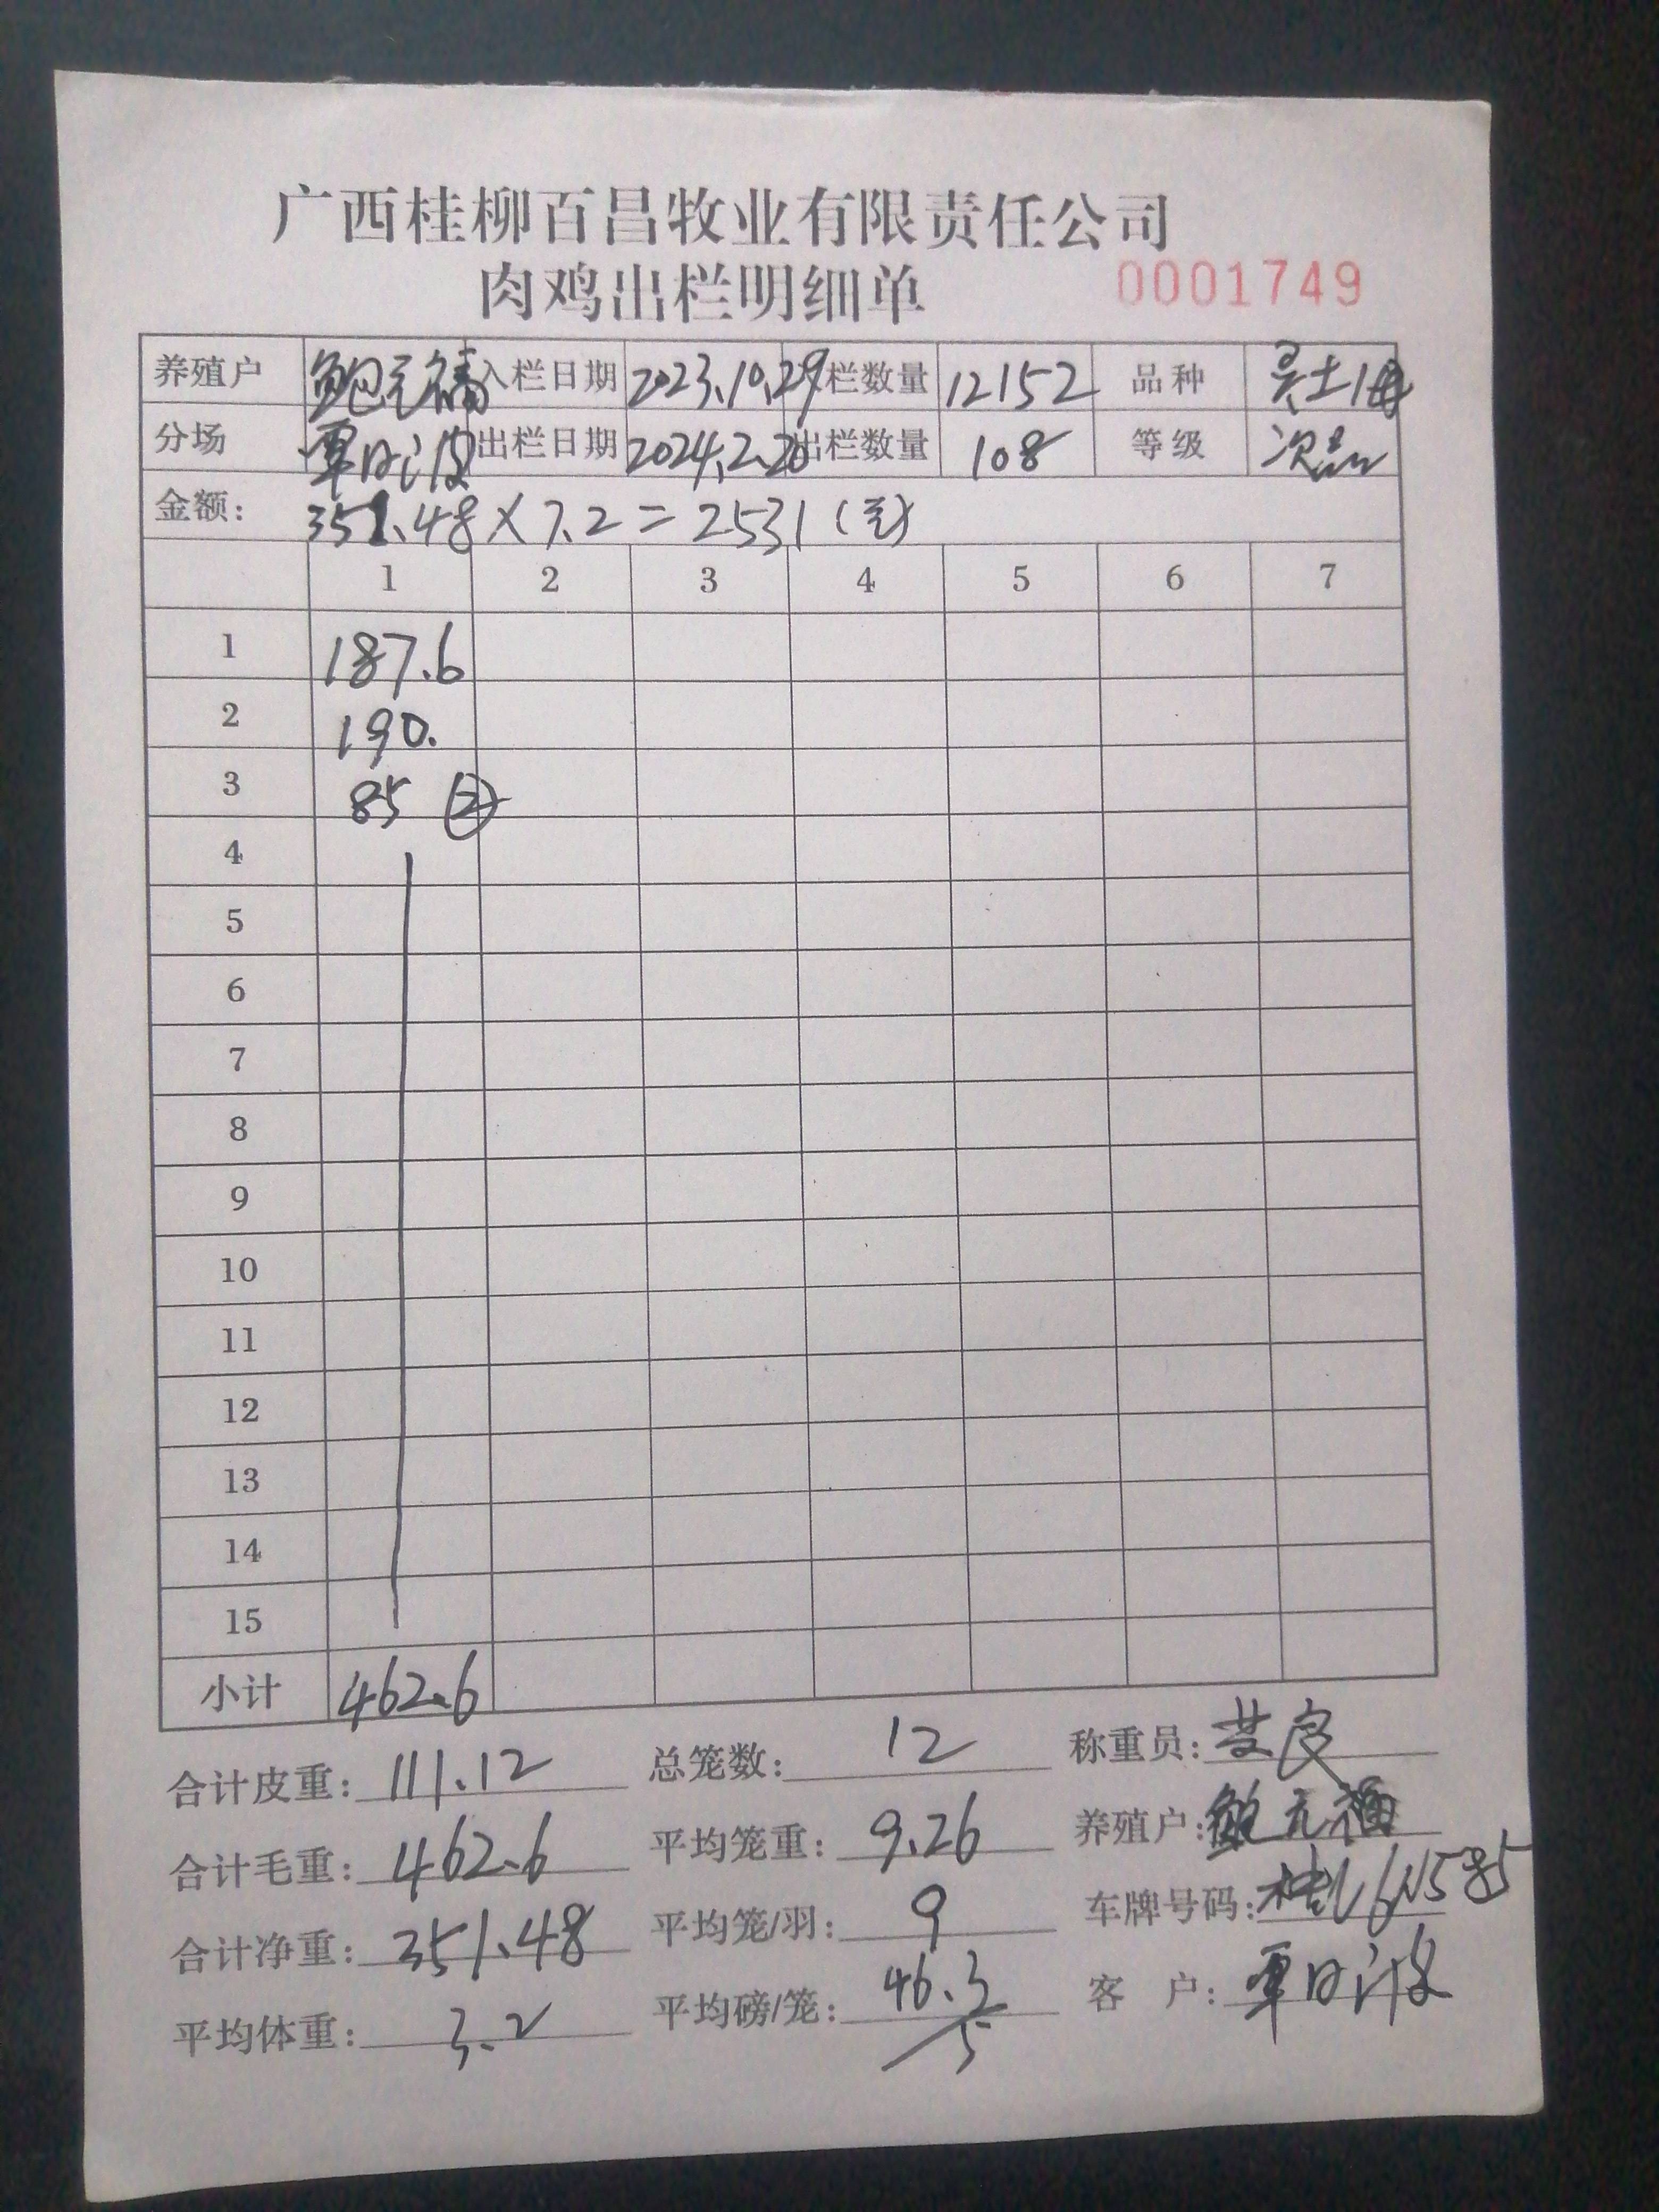 广西桂柳百昌牧业有限责任公司
肉鸡出栏明细单 0001749
养殖户 鲍元福 入栏日期 2023.10.29 栏数量 12152 品种
分场 覃日波 出栏日期 2024.2.20 出栏数量 108 等级 次品
金额: 351.48 X 7.2 = 2531 (元)
1 2 3 4 5 6 7
1 187.6
2 190.
3 85 ②
4
5
6
7
8
9
10
11
12
13
14
15
小计 462.6
合计皮重: 111.12 总笼数: 12 称重员:
合计毛重: 462.6 平均笼重: 9.26 养殖户: 鲍元福
合计净重: 351.48 平均笼/羽: 9 车牌号码: 6N585
平均体重: 3.2 平均磅/笼: 46.3/5 客 户: 覃日波